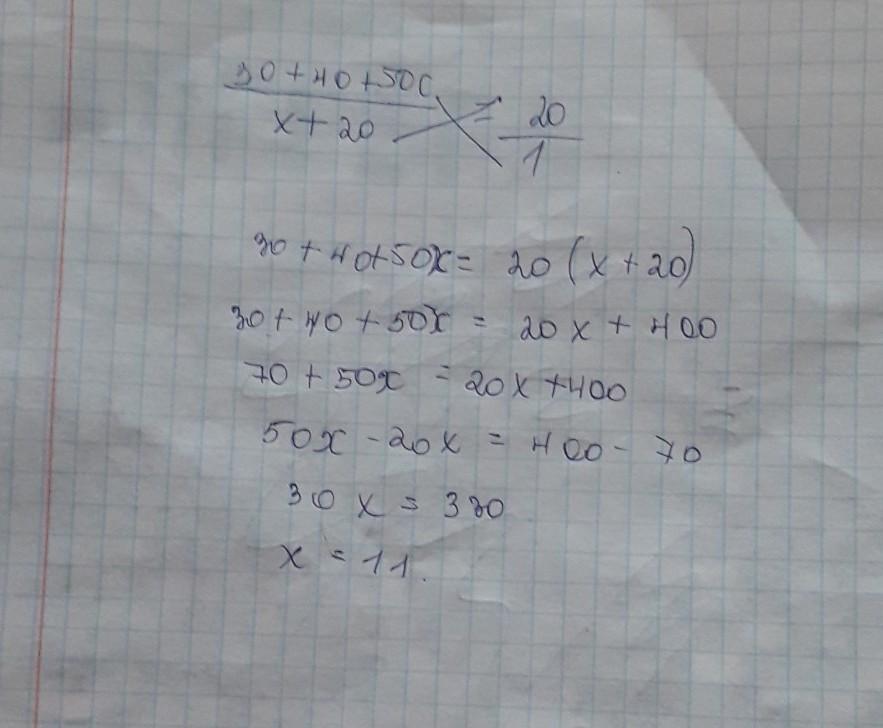 30+40+50x = 20
x+20 1
30+40+50x= 20(x+20)
30+40+50x = 20x+400
70+50x = 20x+400
50x-20x = 400-70
30x=330
x=11.